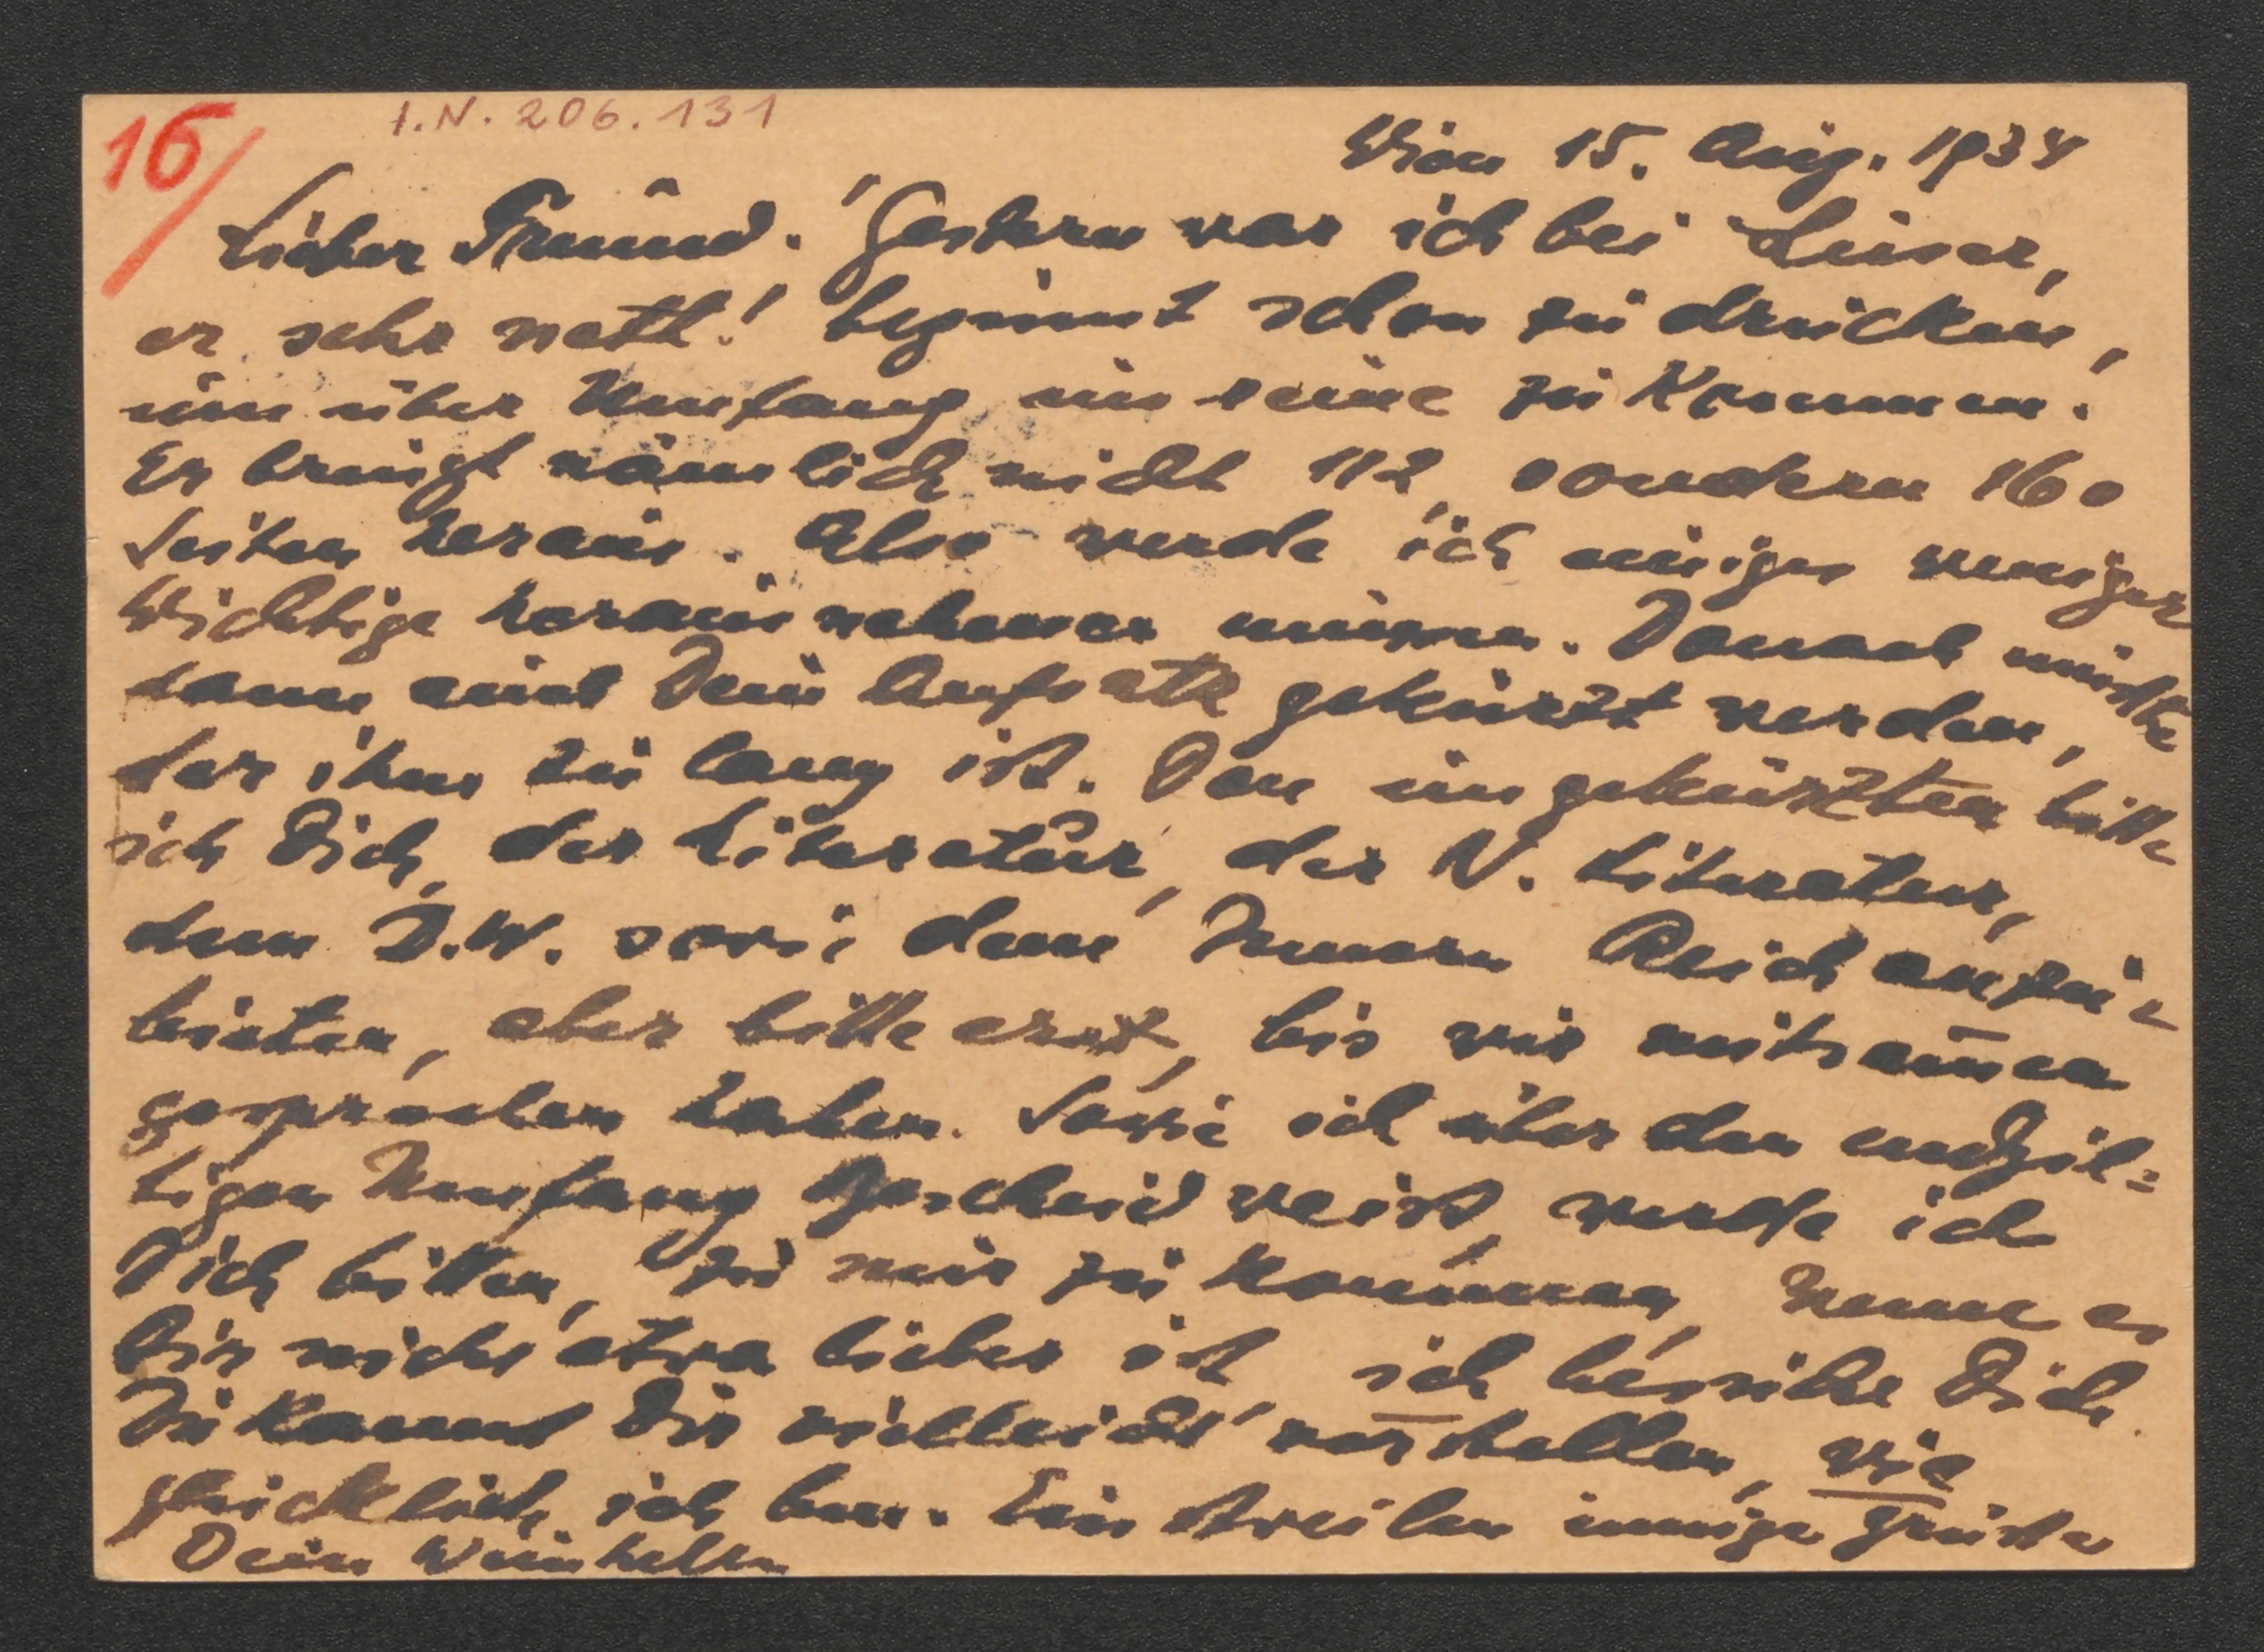 16/
I.N. 206.131
Wien 15. Aug. 1934
Lieber Freund! Gestern war ich bei Luser,
er sehr nett! beginnt schon zu drucken,
um über Umfang ins reine zu kommen.
Er bringt nämlich nicht 112, sondern 160
Seiten heraus. Also werde ich einiges weniger
Wichtige herausnehmen müssen. Danach müsste
dann auch Dein Aufsatz gekürzt werden,
der ihm zu lang ist. Den ungekürzten bitte
ich Dich, der Literatur, der N. Literatur,
dem D.W. sowie dem Innern Reich anzu=
bieten, aber bitte erst, bis wir mitsam̄en
gesprochen haben. Sowie ich über den endgül=
tigen Umfang Bescheid weiss, werde ich
Dich bitten, zu mir zu kommen, wenn es
Dir nicht etwa lieber ist, ich besuche Dich.
Du kannst Dir vielleicht vorstellen, wie
glücklich ich bin. Einstweilen innige Grüsse
Dein Weinheber